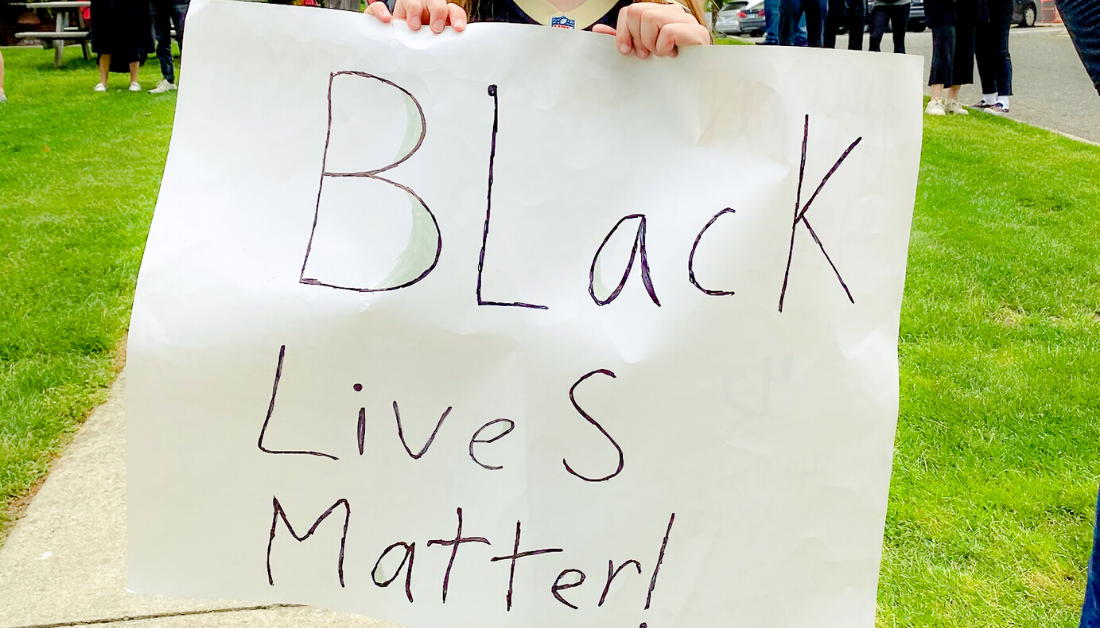 BLack
LiveS
Matter!